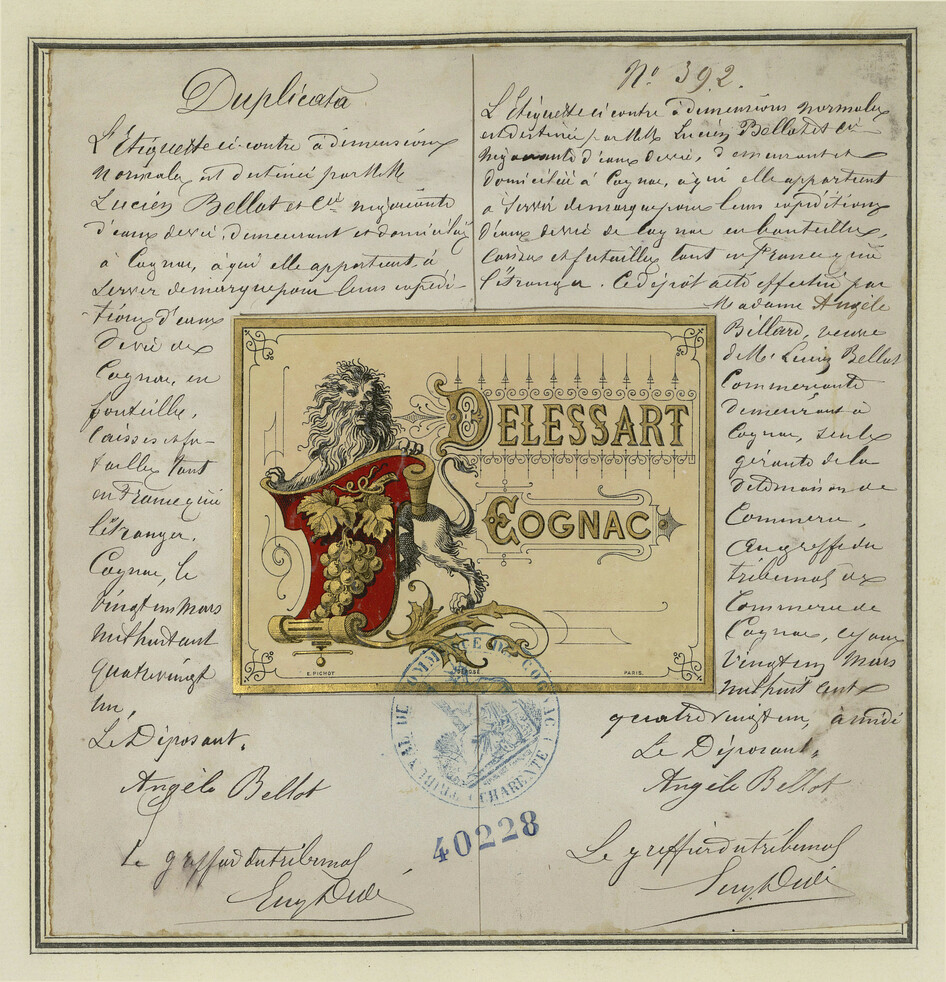 Duplicata
L'Etiquette ci-contre à dimensions
normales est destinée par MM
Lucien Bellot et Cie négociants
d'eaux de vie, demeurant et domiciliés
à Cognac, à qui elle appartient, à
servir de marque pour leurs expédi-
tions d'eaux
de vie de
Cognac, en
bouteilles,
caisses et fu-
tailles tant
en France qu'à
l'étranger.
Cognac, le
vingt un Mars
mil huit cent
quatrevingt
un,
Le Déposant,
Angèle Bellot
Le greffier du tribunal
Eug Dudé
N° 392.
L'Etiquette ci contre à dimensions normales
est destinée par MM Lucien Bellot et Cie
négociants d'eaux de vie, demeurant et
domiciliés à Cognac, à qui elle appartient
à servir de marque pour leurs expéditions
d'eaux de vie de Cognac en bouteilles,
caisses et futailles tant en France qu'à
l'étranger. Ce dépôt a été effectué par
Madame Angèle
Billard, veuve
de Mr Lucien Bellot
Commerçante
demeurant à
Cognac, seule
gérante de la
dite maison de
Commerce,
au greffe du
tribunal de
Commerce de
Cognac, ce jour
vingt un Mars
mil huit cent
quatre vingt un, à midi
Le Déposant,
Angèle Bellot
Le greffier du tribunal
Eug. Dudé
DELESSART
COGNAC
E. PICHOT
DÉPOSÉ
PARIS.
TRIBUNAL DE COMMERCE DE COGNAC (CHARENTE)
40228